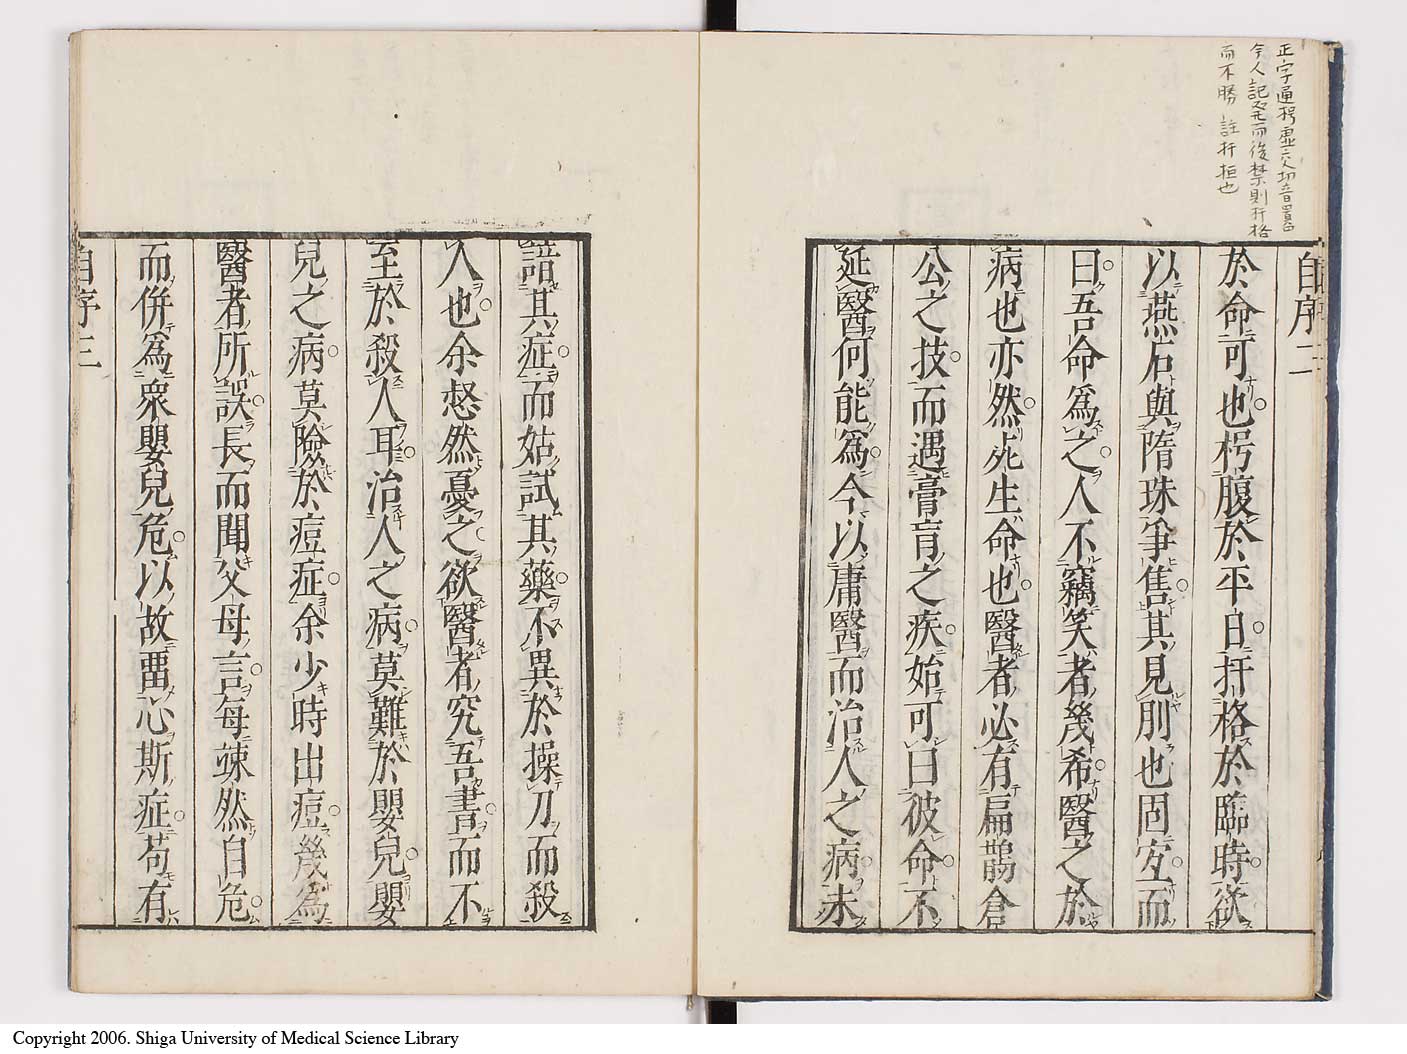 正字通枵虛交切音囂
今人記發而後禁則扞格
而不勝 註扞拒也
自序二
於命可也枵腹於平日扞格於臨時欲
以燕石與隋珠爭售其見刖也固宐而
曰吾命爲之人不竊笑者幾希醫之於
病也亦然死生命也醫者必有扁鵲倉
公之技而遇膏肓之疾始可曰彼命不
延醫何能爲今以庸醫而治人之病未
諳其症而姑試其藥不異於操刀而殺
人也余惄然憂之欲醫者究吾書而不
至於殺人耳治人之病莫難於嬰兒嬰
兒之病莫險於痘症余少時出痘幾爲
醫者所誤長而聞父母言每竦然自危
而併爲衆嬰兒危以故畱心斯症苟有
自序三
Copyright 2006. Shiga University of Medical Science Library